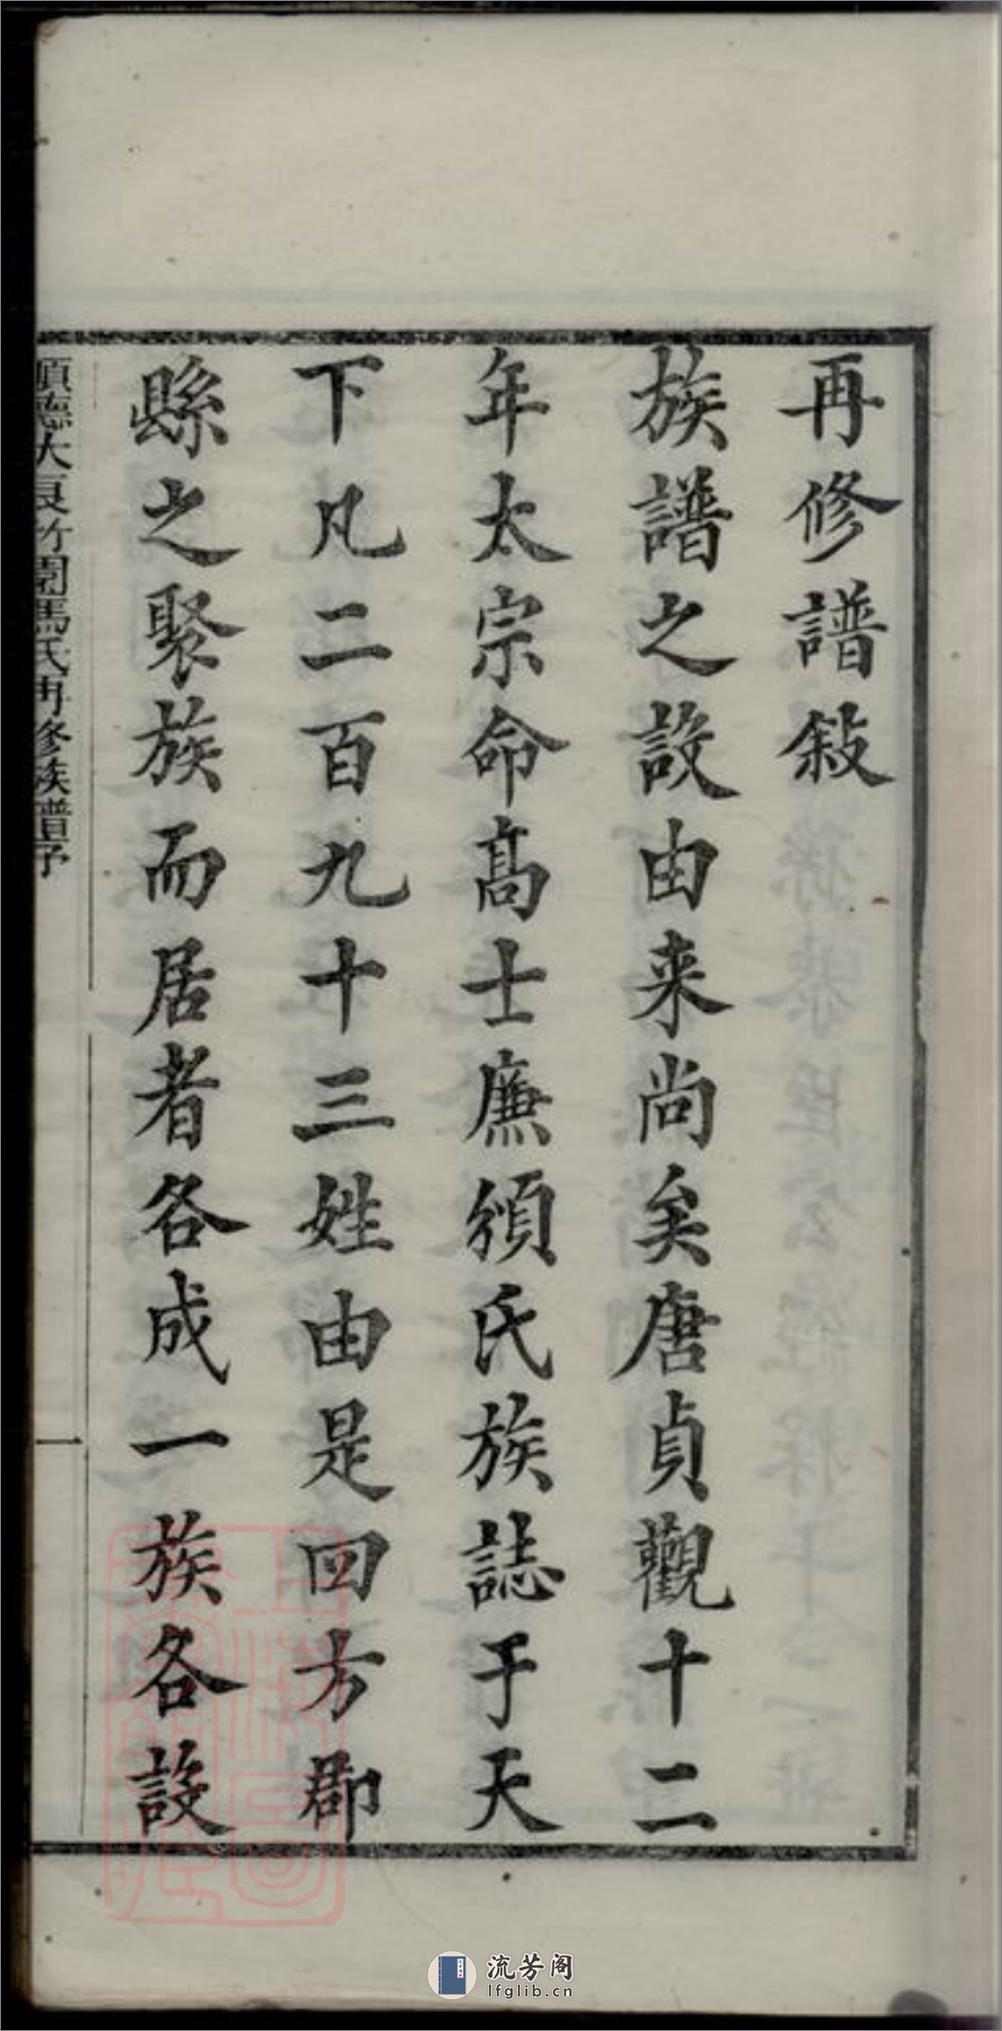 再修譜敍
族譜之設由来尚矣唐貞觀十二
年太宗命髙士廉頒氏族誌于天
下凡二百九十三姓由是四方郡
縣之聚族而居者各成一族各設
順德大良竹園馮氏再修族譜序
一
流芳阁
lfglib.cn